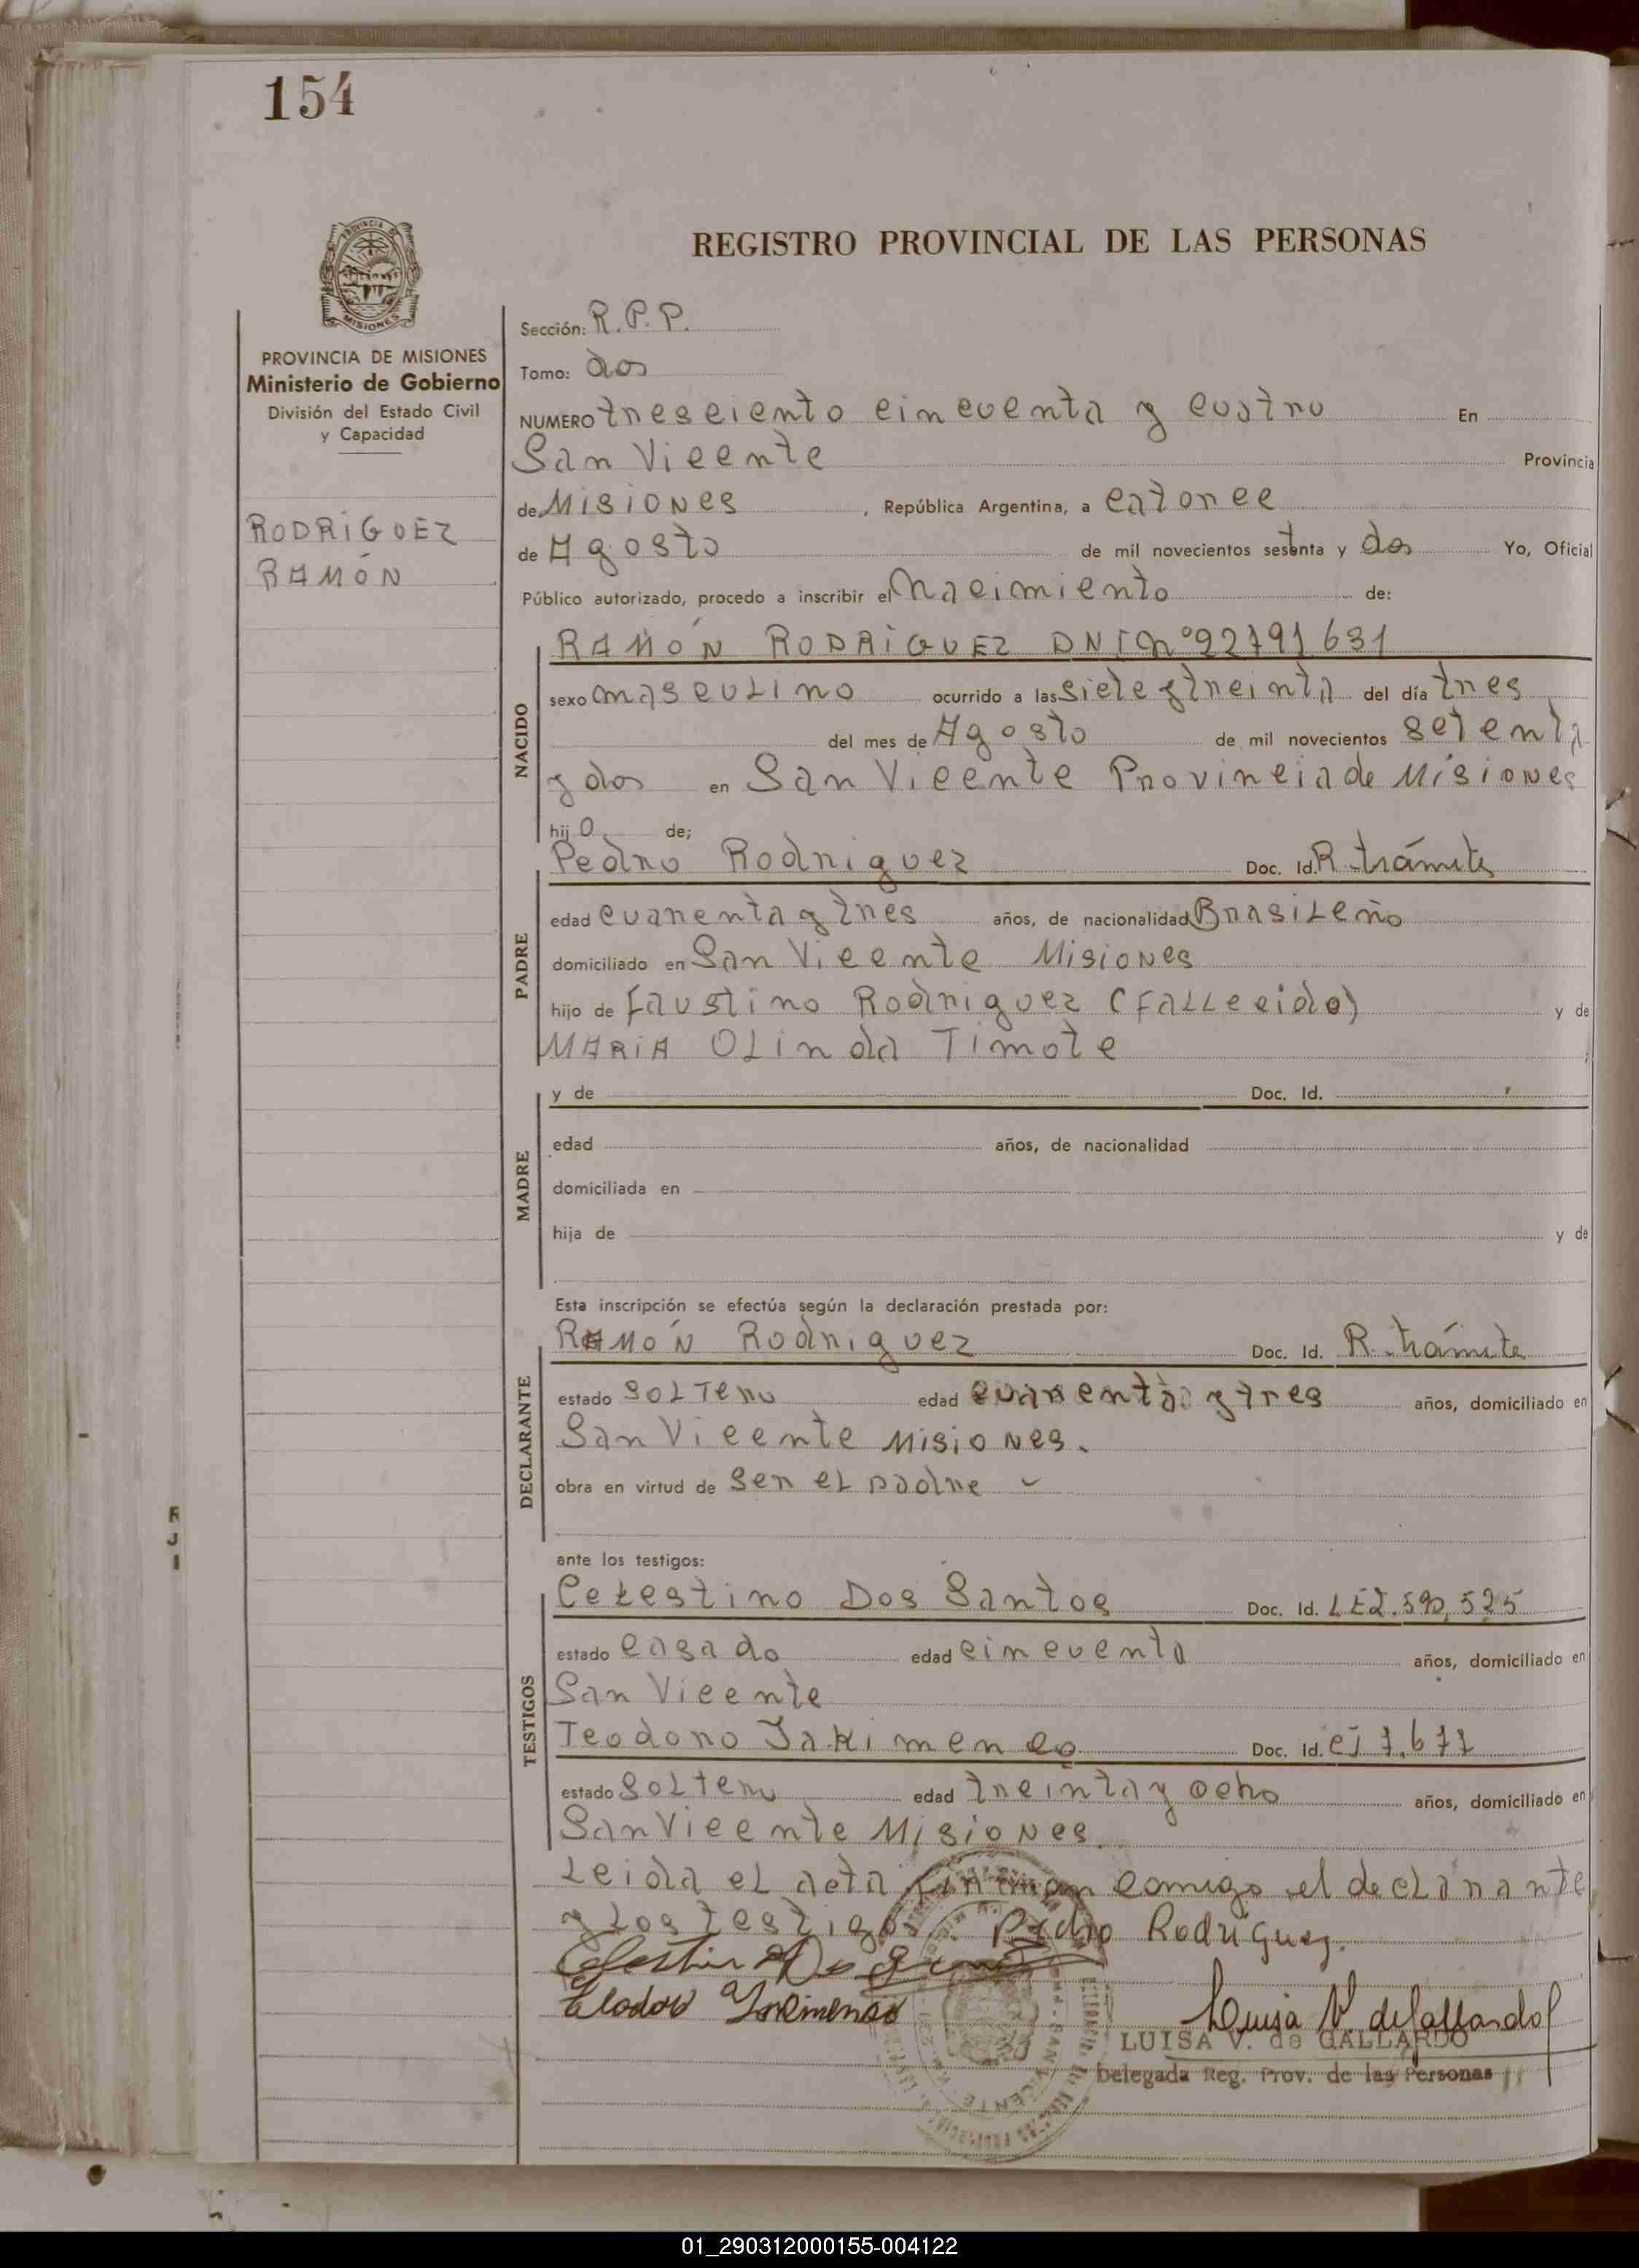 154
PROVINCIA DE MISIONES
Ministerio de Gobierno
División del Estado Civil
y Capacidad
RODRIGUEZ
RAMÓN
REGISTRO PROVINCIAL DE LAS PERSONAS
Sección: R.P.P.
Tomo: dos
NUMERO tresciento cincuenta y cuatro En
San Vicente Provincia
de MISIONES, República Argentina, a catorce
de Agosto de mil novecientos setenta y dos Yo, Oficial
Público autorizado, procedo a inscribir el Nacimiento de:
NACIDO
RAMÓN RODRIGUEZ DNI Nº 92791631
sexo masculino ocurrido a las siete y treinta del día tres
del mes de Agosto de mil novecientos setenta
y dos en San Vicente Provincia de Misiones
hijo de;
PADRE
Pedro Rodriguez Doc. Id. R. trámite
edad cuarenta y tres años, de nacionalidad Brasileño
domiciliado en San Vicente Misiones
hijo de Faustino Rodriguez (Fallecido) y de
MARIA Olinda Timote
MADRE
y de Doc. Id.
edad años, de nacionalidad
domiciliada en
hija de y de
Esta inscripción se efectúa según la declaración prestada por:
DECLARANTE
RAMÓN Rodriguez Doc. Id. R. trámite
estado soltero edad cuarenta y tres años, domiciliado en
San Vicente Misiones.
obra en virtud de ser el padre
ante los testigos:
TESTIGOS
Celestino Dos Santos Doc. Id. LE2.590,525
estado casado edad cincuenta años, domiciliado en
San Vicente
Teodoro Jakimenco Doc. Id. CI 7.677
estado soltero edad treinta y ocho años, domiciliado en
San Vicente Misiones.
Leida el acta firman comigo el declarante
y los testigos. Pedro Rodriguez.
Luisa V. de Gallardo
LUISA V. de GALLARDO
Delegada Reg. Prov. de las Personas
01_290312000155-004122